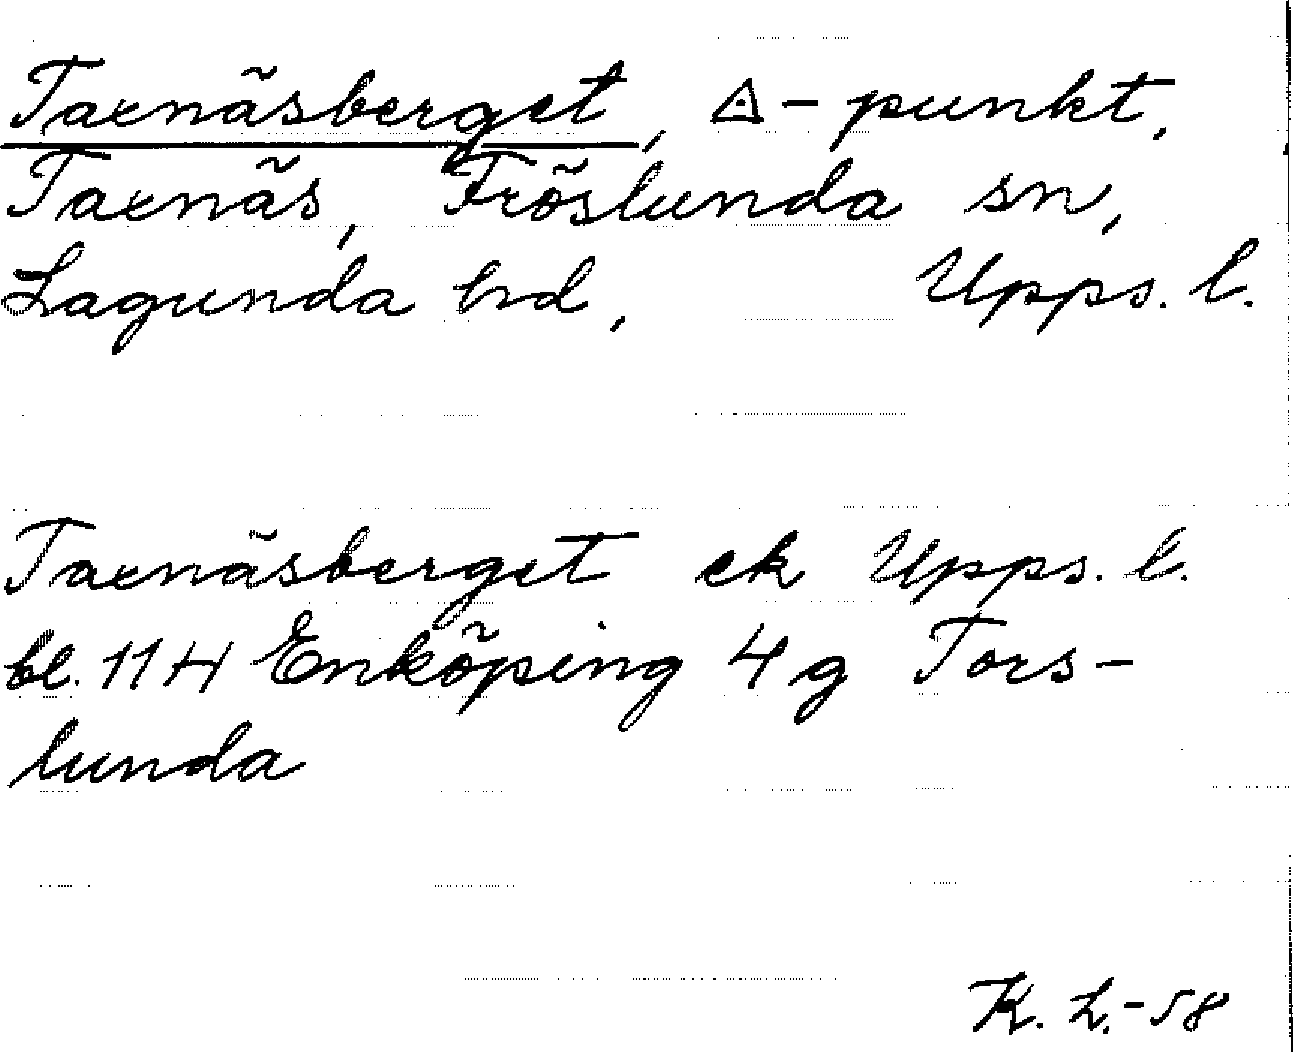 Taxnäsberget, △-punkt,
Taxnäs, Fröslunda sn,
Lagunda hd, Upps. l.
Taxnäsberget ek Upps. l.
bl. 11 H Enköping 4 g Tors-
lunda
K. L.-58